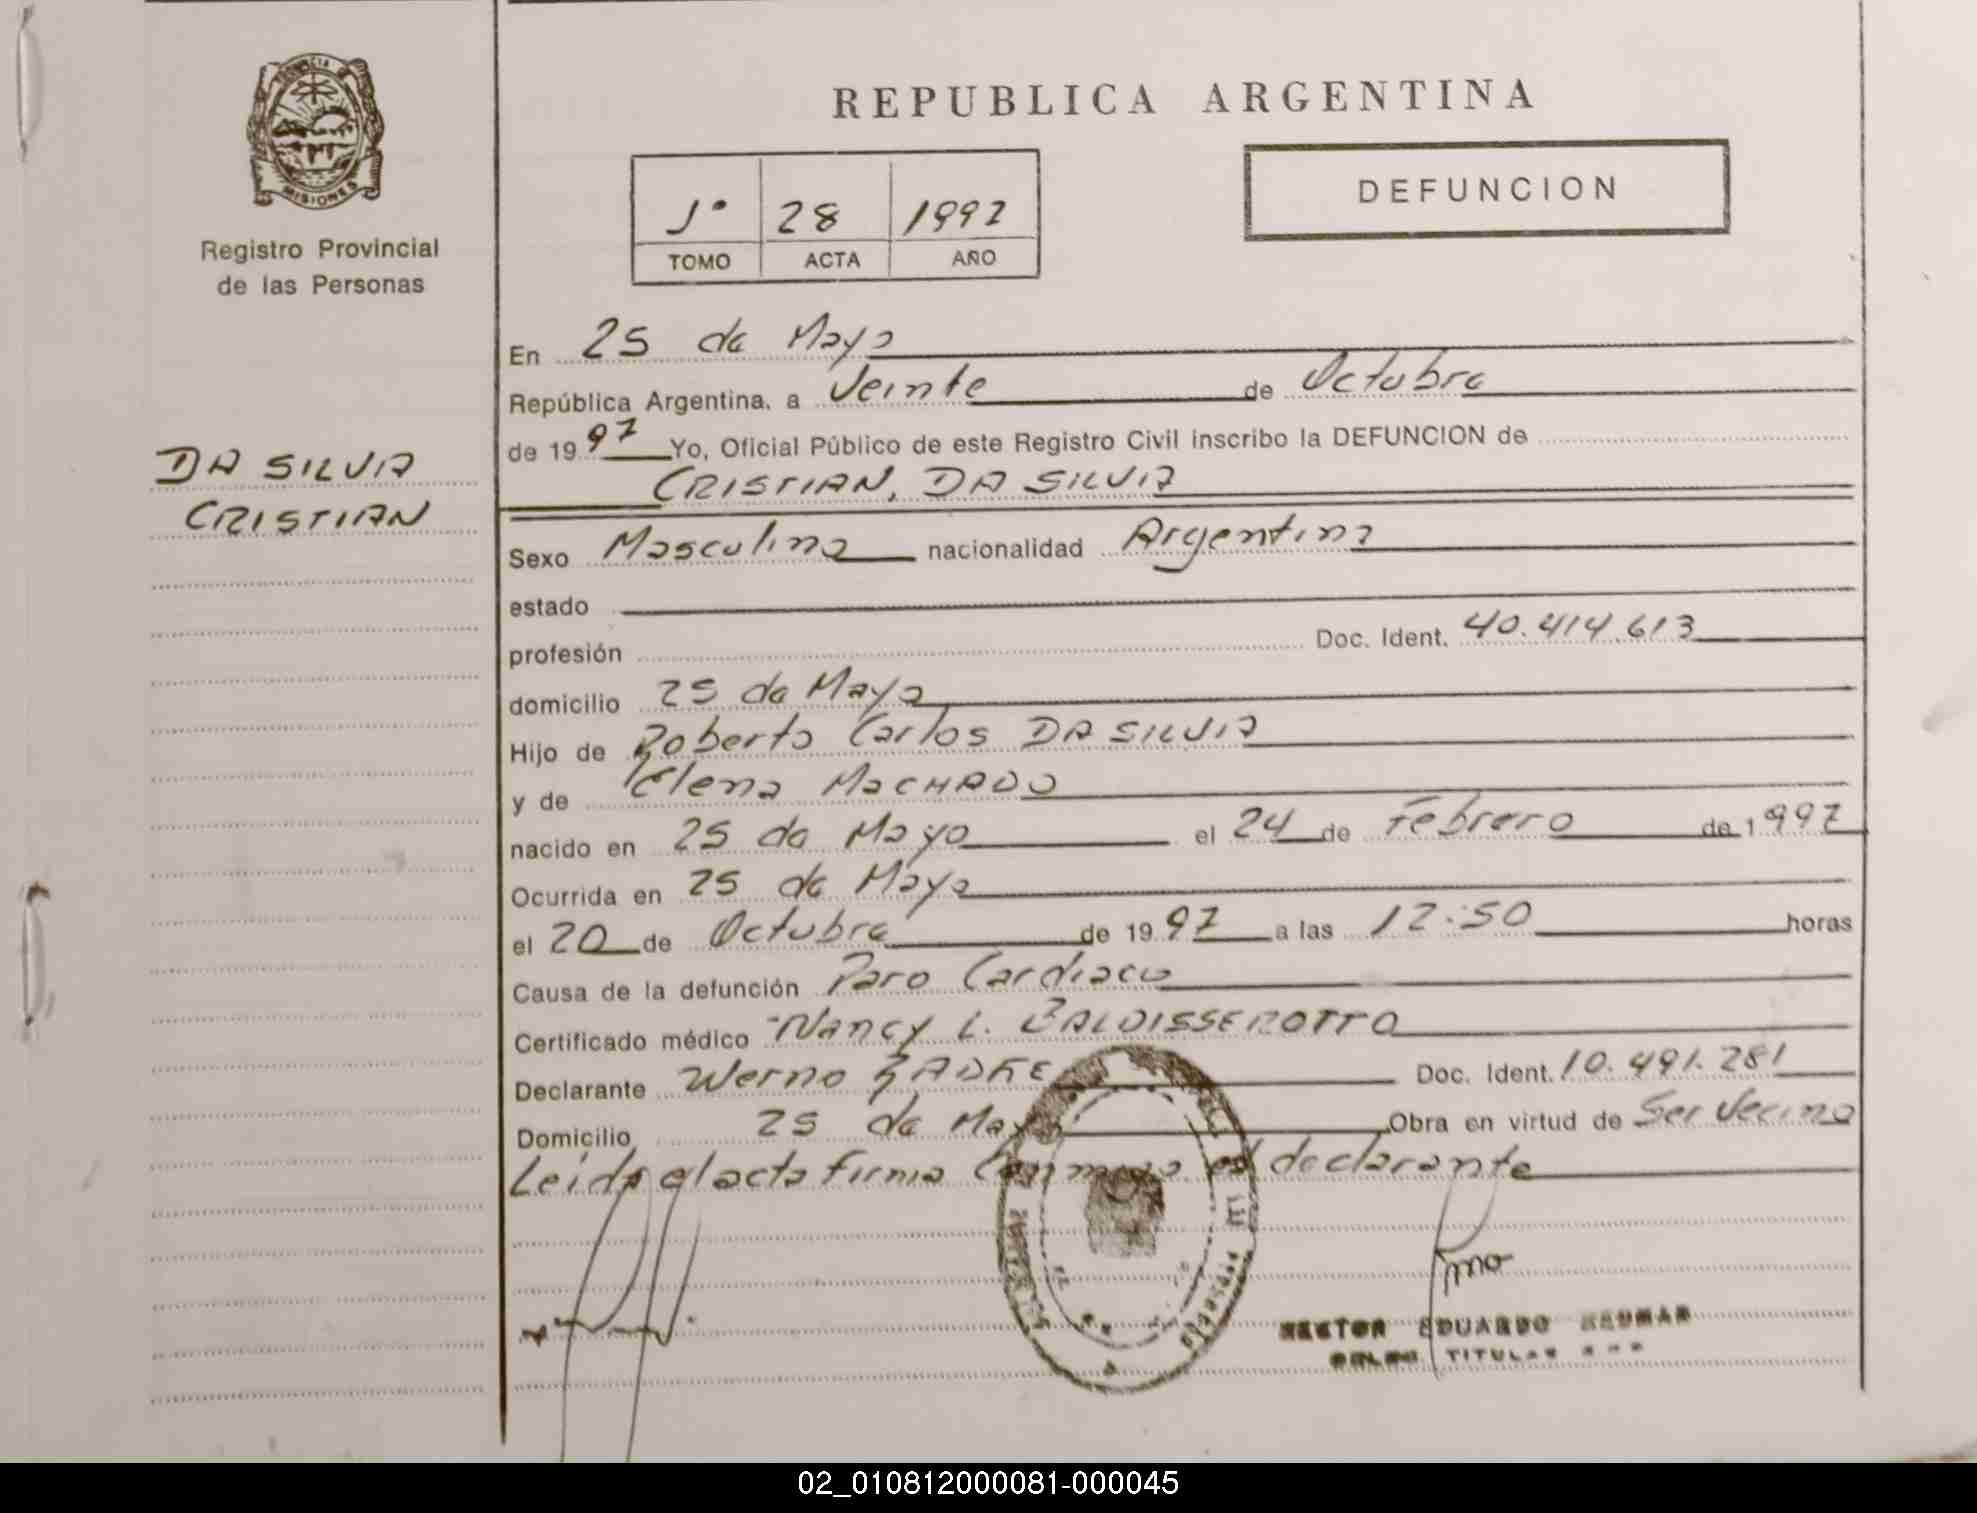 PROVINCIA DE
MISIONES
Registro Provincial
de las Personas
DA SILVA
CRISTIAN
REPUBLICA ARGENTINA
1º 28 1997
TOMO ACTA AÑO
DEFUNCION
En 25 de Mayo
República Argentina, a Veinte de Octubre
de 1997 Yo, Oficial Público de este Registro Civil inscribo la DEFUNCION de
CRISTIAN, DA SILVA
Sexo Masculino nacionalidad Argentina
estado
profesión Doc. Ident. 40.414.613
domicilio 25 de Mayo
Hijo de Roberto Carlos DA SILVA
y de Elena MACHADO
nacido en 25 de Mayo el 24 de Febrero de 1997
Ocurrida en 25 de Mayo
el 20 de Octubre de 1997 a las 12:50 horas
Causa de la defunción Paro Cardiaco
Certificado médico Nancy L. BALDISSEROTTO
Declarante Werno RADKE Doc. Ident. 10.491.281
Domicilio 25 de Mayo Obra en virtud de Ser Vecino
Leída el acta firma Conmigo el declarante
EDUARDO
TITULAR
02_010812000081-000045